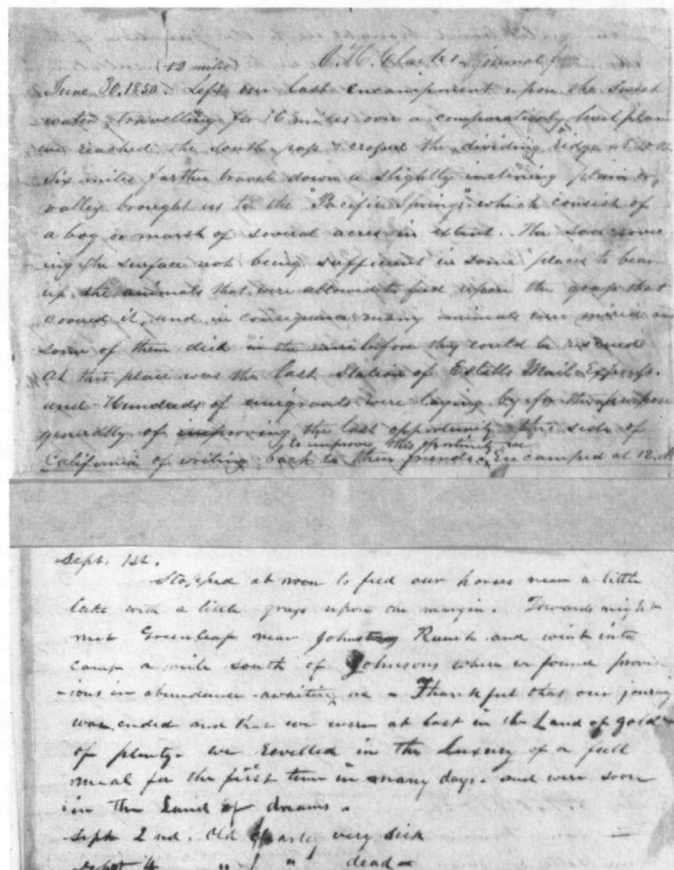 (12 miles)
June 30, 1850. Left our last encampment upon the Sweet
water, travelling for 6 miles over a comparatively level plain
we reached the South pass & crossed the dividing ridge at
Six miles farther travel down a slightly inclining plain or
valley brought us to the "Pacific Springs" which consist of
a bog or marsh of several acres in extent. The
ing the surface not being sufficient in some places to bear
up the animals that were allowed to feed upon the grass that
covered it, and in consequence many animals were mired &
some of them died in the mire before they could be rescued
At this place was the last Station of Estells Mail Express.
and Hundreds of emigrants were laying by for the purpose
generally of improving the last opportunity this side of
to improve this
California of writing back to their friends. Encamped at 12. M
Sept. 1st.
Stopped at noon to feed our horses near a little
lake with a little grass upon the margin. Towards night
met Greenleaf near Johnsons Ranch and went into
camp a mile south of Johnsons where we found provis
-ions in abundance awaiting us - Thankful that our journey
was ended and that we were at last in the Land of gold &
of plenty. we revelled in the Luxury of a full
meal for the first time in many days. and were soon
in the Land of dreams.
Sept 2nd. Old Charley very sick
Sept 4 " " " dead -